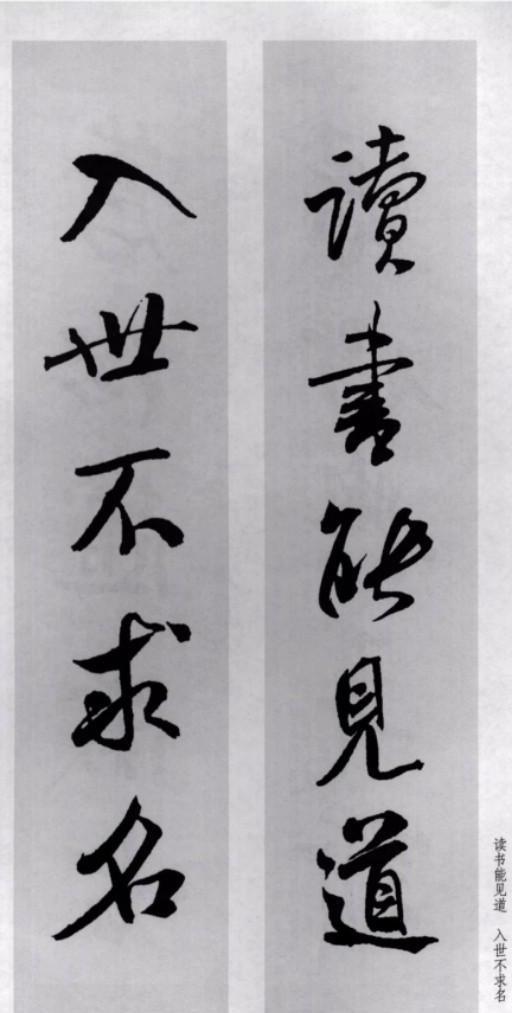 讀書能見道
入世不求名
读书能见道 入世不求名